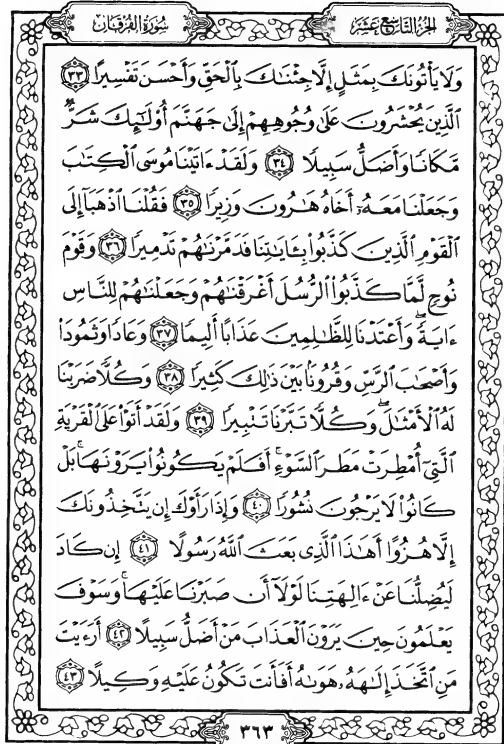 سُورَةُ الْفُرْقَانِ
الجُزْءُ التَّاسِعَ عَشَرَ
وَلَا يَأْتُونَكَ بِمَثَلٍ إِلَّا جِئْنَٰكَ بِٱلْحَقِّ وَأَحْسَنَ تَفْسِيرًا ٣٣
ٱلَّذِينَ يُحْشَرُونَ عَلَىٰ وُجُوهِهِمْ إِلَىٰ جَهَنَّمَ أُو۟لَٰٓئِكَ شَرٌّ
مَّكَانًا وَأَضَلُّ سَبِيلًا ٣٤ وَلَقَدْ ءَاتَيْنَا مُوسَى ٱلْكِتَٰبَ
وَجَعَلْنَا مَعَهُۥٓ أَخَاهُ هَٰرُونَ وَزِيرًا ٣٥ فَقُلْنَا ٱذْهَبَآ إِلَى
ٱلْقَوْمِ ٱلَّذِينَ كَذَّبُوا۟ بِـَٔايَٰتِنَا فَدَمَّرْنَٰهُمْ تَدْمِيرًا ٣٦ وَقَوْمَ
نُوحٍ لَّمَّا كَذَّبُوا۟ ٱلرُّسُلَ أَغْرَقْنَٰهُمْ وَجَعَلْنَٰهُمْ لِلنَّاسِ
ءَايَةً ۖ وَأَعْتَدْنَا لِلظَّٰلِمِينَ عَذَابًا أَلِيمًا ٣٧ وَعَادًا وَثَمُودَا۟
وَأَصْحَٰبَ ٱلرَّسِّ وَقُرُونًۢا بَيْنَ ذَٰلِكَ كَثِيرًا ٣٨ وَكُلًّا ضَرَبْنَا
لَهُ ٱلْأَمْثَٰلَ ۖ وَكُلًّا تَبَّرْنَا تَتْبِيرًا ٣٩ وَلَقَدْ أَتَوْا۟ عَلَى ٱلْقَرْيَةِ
ٱلَّتِىٓ أُمْطِرَتْ مَطَرَ ٱلسَّوْءِ ۚ أَفَلَمْ يَكُونُوا۟ يَرَوْنَهَا ۚ بَلْ
كَانُوا۟ لَا يَرْجُونَ نُشُورًا ٤٠ وَإِذَا رَأَوْكَ إِن يَتَّخِذُونَكَ
إِلَّا هُزُوًا أَهَٰذَا ٱلَّذِى بَعَثَ ٱللَّهُ رَسُولًا ٤١ إِن كَادَ
لَيُضِلُّنَا عَنْ ءَالِهَتِنَا لَوْلَآ أَن صَبَرْنَا عَلَيْهَا ۚ وَسَوْفَ
يَعْلَمُونَ حِينَ يَرَوْنَ ٱلْعَذَابَ مَنْ أَضَلُّ سَبِيلًا ٤٢ أَرَءَيْتَ
مَنِ ٱتَّخَذَ إِلَٰهَهُۥ هَوَىٰهُ أَفَأَنتَ تَكُونُ عَلَيْهِ وَكِيلًا ٤٣
٣٦٣